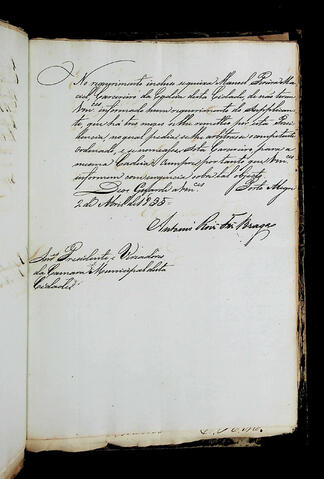 No requerimento incluso se queixa Manoel Pereira Ma-
ciel, Carcereiro da Cadêa desta Cidade de não terem
V.m.ces informado hum requerimento do Supplicante
que ha tres mezes lhe foi remettido por esta Presi-
dencia no qual pedia se lhe arbitrasse competente
ordenado, e
Carcereiro para a
mesma Cadêa: cumpre por tanto que V.m.ces
informem com urgencia sobre tal objecto.
Deos Guarde a V.m.ces Porto Alegre
2 de Abril de 1835
Antonio Roiz Frz Braga
Snr.es Presidente, e Vereadores
da Camara Municipal desta
Cidade